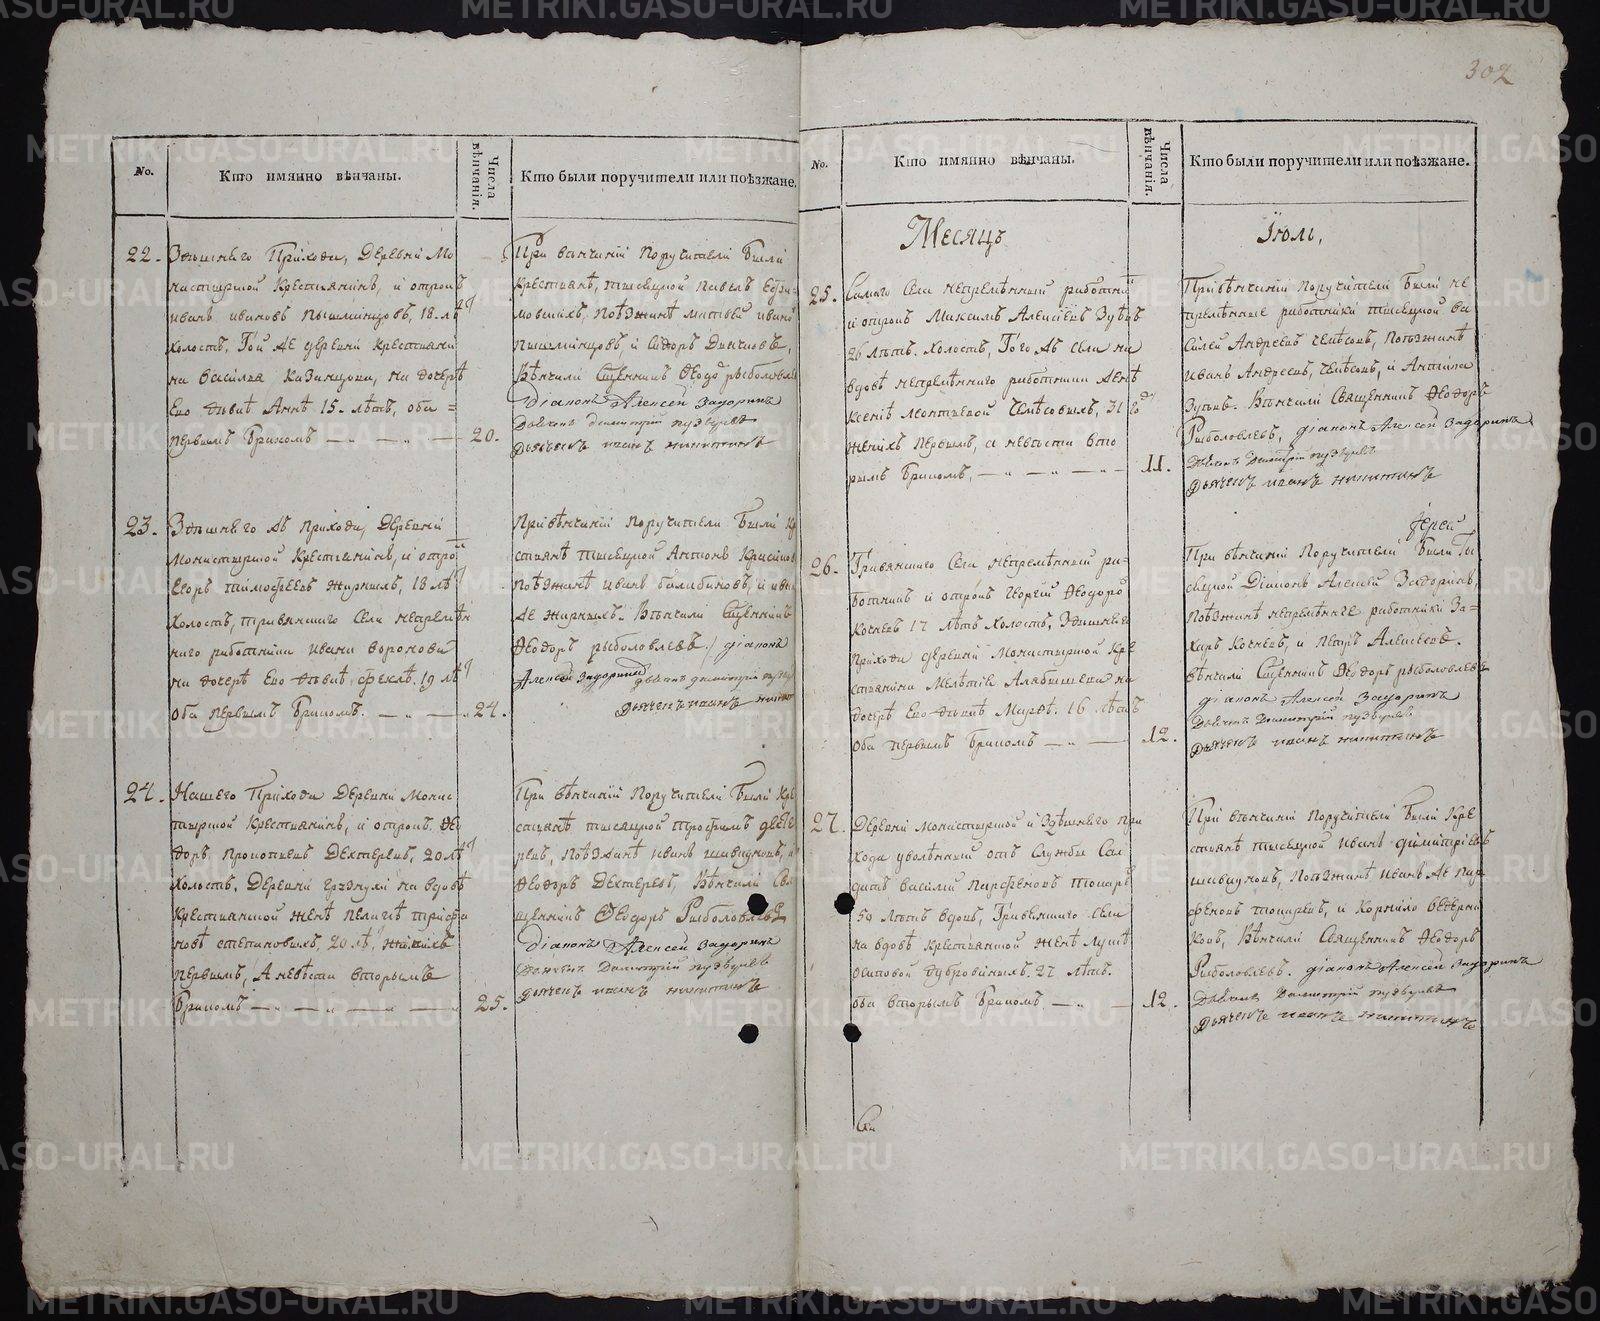 302
No.
Кто имянно вѣнчаны.
Числа вѣнчанія.
Кто были поручители или поѣзжане.
22.
Здѣшняго Прихода, Деревни Мо
настырской Крестьянинъ, и отрокъ
Иванъ Ивановъ Пышминцовъ, 18. лѣ
холостъ, Той де деревни Крестьяни
на Василья Казанцова, на дочерѣ
Ево дѣвкѣ Аннѣ 15. лѣтъ, оба =
первымъ бракомъ
20.
При вѣнчаніи Поручители были
Крестьянѣ, тысяцкой Павелъ
поѣзжанѣ Матвей Ивано
Пышминцовъ, и Сидоръ
Вѣнчали Сщенникъ Ѳеодо рыболовле
Діаконъ Алексей Задоринъ
Дьячокъ Димитрій
Дьячекъ иванъ никитинъ
23.
Здѣшняго дѣ прихода, Деревни
Монастырской Крестьянинъ, и отро
Егоръ тимофеевъ Жирныхъ, 18 лѣ
холостъ, Травянского Села непремѣн
наго работника Ивана Воронова
на дочерѣ Ево дѣвкѣ, Феклѣ. 19 лѣ
оба первымъ бракомъ.
24.
При вѣнчаніи поручители были Кр
стьянѣ тысяцкой Антонъ
поѣзжанѣ иванъ и ива
де жирныхъ. Вѣнчали Сщенникъ
Ѳеодоръ рыболовлевъ / діаконъ
Алексей Задоринъ дьячокъ димитрій
Дьячекъ иванъ никит
24.
Нашего Прихода Деревни Монас
тырской Крестьянинъ, и отрокъ. Ѳео
доръ, Прокопьевъ Дехтеревъ, 20 лѣ
холостъ, Деревни Грязнухи на вдовѣ
Крестьянской женѣ Пелагѣѣ
Степановыхъ, 20 лѣ, женихъ
первымъ, А невѣста вторымъ
бракомъ
25.
При вѣнчаніи Поручители были Кре
стьянѣ тысяцкой Трофимъ дехте
ревъ, поѣзжанѣ иванъ
Ѳеодоръ Дехтеревъ, Вѣнчали Свя
щенникъ Ѳеодоръ Рыболовлевъ
Діаконъ Алексей Задоринъ
Дьячокъ Димитрій
Дьячекъ иванъ никитинъ
No.
Кто имянно вѣнчаны.
Числа вѣнчанія.
Кто были поручители или поѣзжане.
Месяцъ
Іюль,
25.
Самаго Села непремѣнный работни
и отрокъ Максимъ Алексѣевъ Зуевъ
26 лѣтъ. холостъ, Того дѣ села на
вдовѣ непремѣннаго работника женѣ
Ксенѣ 31 го
женихъ первымъ, а невѣста вто
рымъ бракомъ,
11.
При вѣнчаніи Поручители были не
премѣнные работники тысяцкой Ва
силей Андреевъ поѣзжанѣ
Иванъ Андреевъ, и Антипа
Зуевъ. Вѣнчали Священникъ Ѳеодоръ
Рыболовлевъ, діаконъ Алексей Задоринъ
Дьячокъ Димитрій
Дьячекъ иванъ никитинъ
26.
Травянского Села непремѣнный ра-
ботникъ и отрокъ Георгій Ѳеодоро
Кочневъ 17 лѣтъ холостъ. Здѣшнего
Прихода деревни Монастырской Кре
стьянина на
дочерѣ Ево дѣвкѣ Марѳѣ. 16 лѣтъ
оба первымъ бракомъ
12.
іерей
При вѣнчаніи Поручители были ты
сяцкой Діаконъ Алексей Задоринъ,
поѣзжанѣ непремѣнные работники За=
харъ Кочневъ, и Петръ Алексеевъ.
вѣнчали Сщенникъ Ѳеодоръ рыболовлевъ
діаконъ Алексей Задоринъ
Дьячокъ Димитрій
Дьячекъ иванъ никитинъ
27.
Деревни Монастырской и Здѣшнего при
хода уволѣнный отъ Службы Сол
датъ Василій Парфеновъ
59 лѣтъ вдовъ, Травянского Села
на вдовѣ крестьянской женѣ
Осиповой Дубровиныхъ. 27 лѣтъ.
оба вторымъ бракомъ
12.
При вѣнчаніи Поручители были Кре
стьянѣ тысяцкой Иванъ димитріевъ
поѣзжанѣ Иванъ де пар
феновъ и Корнило
Вѣнчали Священникъ Ѳеодоръ
Рыболовлевъ. діаконъ Алексей Задоринъ
Дьячокъ Димитрій
Дьячекъ иванъ никитинъ
METRIKI.GASO-URAL.RU